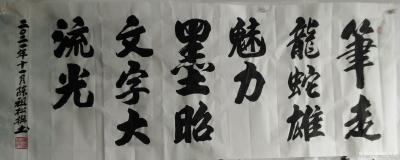 筆走
龍蛇雄
魅力
墨昭
文字大
流光
二〇二一年十一月陈祖松撰书